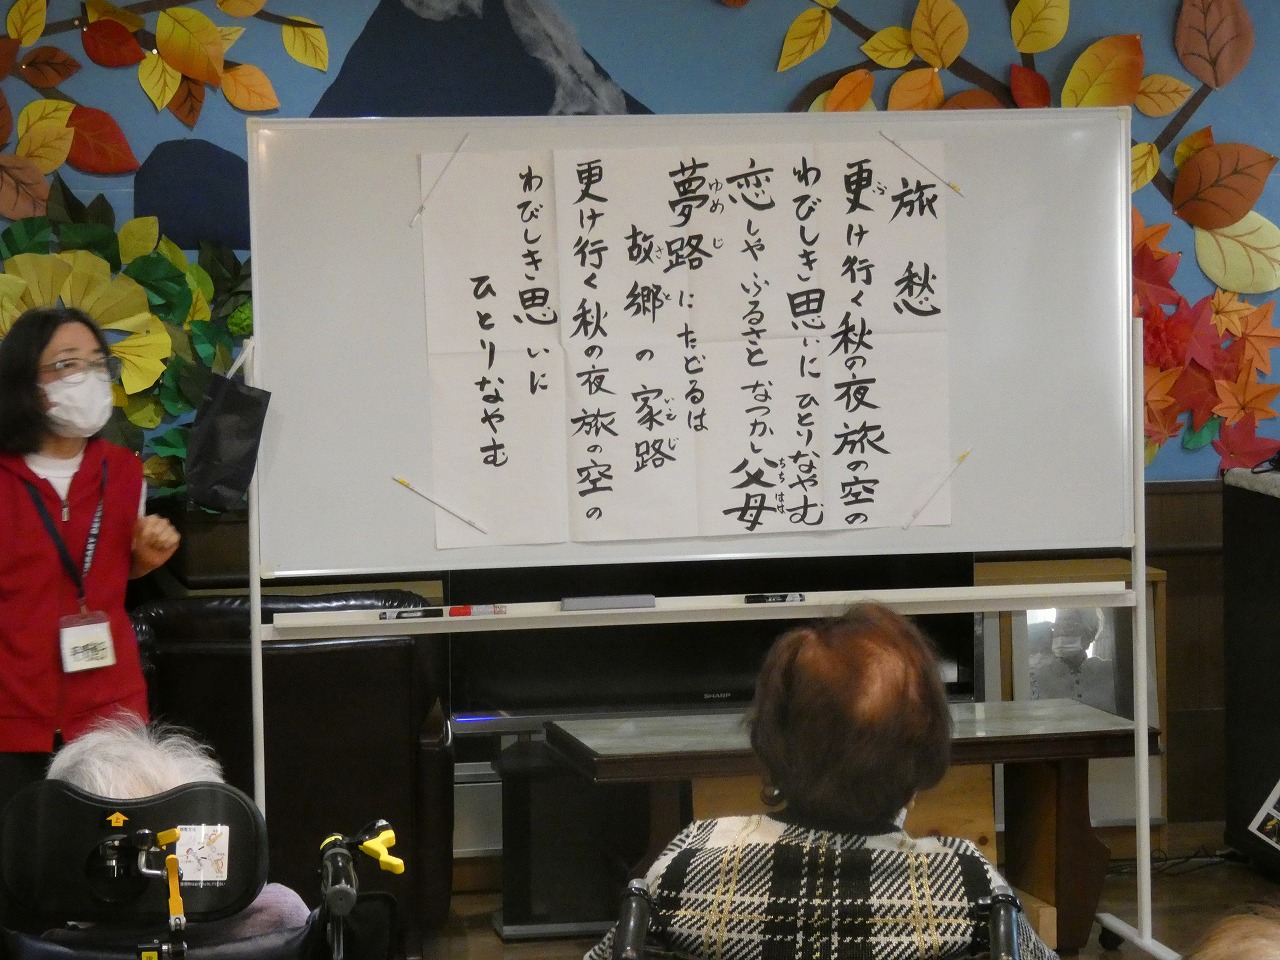 旅愁
更け行く秋の夜旅の空の
わびしき思いにひとりなやむ
恋しやふるさとなつかし父母
夢路にたどるは
故郷の家路
更け行く秋の夜旅の空の
わびしき思いに
ひとりなやむ
ふ
ちちはは
ゆめじ
さと
いえじ
SHARP
上